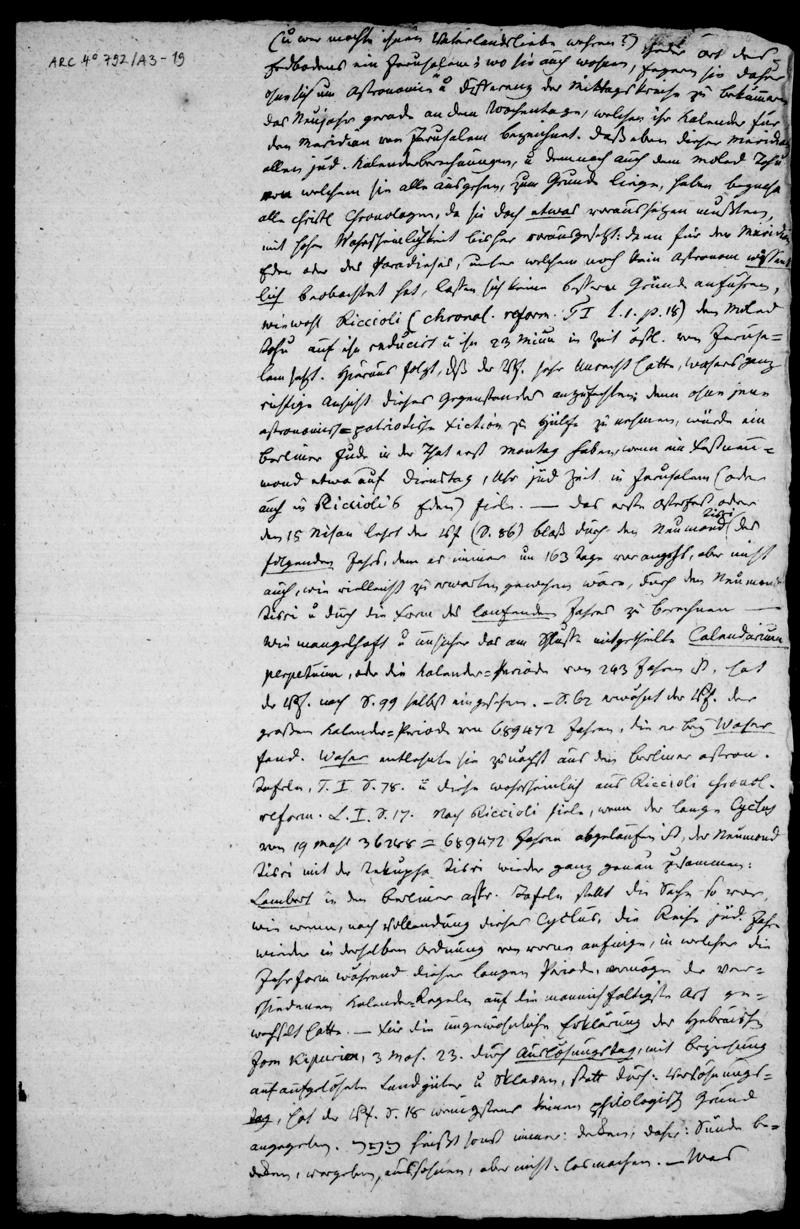 ARC 4° 792/A3-19
(u wer mochte ihnen Vaterlandsliebe wehren?) jeder Ort des
Erdbodens ein Jerusalem; wo sie auch wohnen, feyern sie daher
ohne sich um Astronomie u Differenz der Mittagskreise zu bekümmern
das Neujahr gerade an dem Wochentage, welchen ihr Kalender für
den Meridian von Jerusalem bezeichnet. Daß eben dieser Meridian
allen jüd. Kalenderberechnungen, u demnach auch dem Moled Tohu
von welchem sie alle ausgehen, zum Grunde liege, haben beynahe
alle christl Chronologen, da sie doch etwas voraussetzen mußten,
mit hoher Wahrscheinlichkeit bisher vorausgesetzt: denn für den Meridian
Eden oder des Paradieses, unter welchem noch kein Astronom wissent
lich beobachtet hat, lassen sich keine bessern Gründe anführen,
wiewohl Riccioli (chronol. reform. T I l. 1. p. 18) den Moled
Tohu auf ihn reducirt u ihn 23 Minu in Zeit östl. von Jerusa=
lem setzt. Hieraus folgt, daß der Vf. sehr Unrecht hatte, ganz
richtige Ansicht dieses Gegenstandes anzufechten; denn ohne jene
astronomisch=patriotische Fiction zu Hülfe zu nehmen, würde ein
Berliner Jude in der That erst Montag haben, wenn ein
mond etwa auf Dienstag, Uhr jüd Zeit in Jerusalem (oder
auch in Riccioli's Eden) fiele. — Das erste Osterfest oder
den 15 Nisan lehrt der Vf (S. 86) bloß durch den Neumond Tisri des
folgenden Jahrs, dem er immer um 163 Tage vorangeht, aber nicht
auch, wie vielleicht zu erwarten gewesen wäre, durch den Neumond
Tisri u durch die Form des laufenden Jahres zu berechnen —
Wie mangelhaft u unsicher das am Schlusse mitgetheilte Calendarium
perpetuum, oder die Kalender=Periode von 243 Jahren ist, hat
der Vf. nach S. 99 selbst eingesehen. — S. 62 erwähnt der Vf. der
großen Kalender=Periode von 689472 Jahren, die er bey Waser
fand. Waser entlehnte sie zunächst aus den Berliner astron.
Tafeln, T. I S. 78. u diese wahrscheinlich aus Riccioli chronol.
reform. L. I. S. 17. Nach Riccioli fiele, wenn der lange Cyclus
von 19 mahl 36288 = 689472 Jahren abgelaufen ist, der Neumond
Tisri mit der Tekupha Tisri wieder ganz genau zusammen:
Lambert in den Berliner astr. Tafeln stellt die Sache so vor,
wie wenn, nach Vollendung dieses Cyclus, die Reihe jüd. Jahre
wieder in derselben Ordnung von vorne anfinge, in welcher die
Jahrform während dieser langen Periode, vermöge der ver=
schiedenen Kalender=Regeln auf die mannichfaltigste Art ge=
wechselt hatte. — Für die ungewöhnliche Erklärung des Hebräisch
Jom Kipurim, 3 Mos. 23. durch Auslösungstag, mit Beziehung
auf aufgelösete Landgüter u Sklaven, statt durch: Versöhnungs=
tag, hat der Vf. S. 18 wenigstens keinen philologisch Grund
angegeben. כפר heißt sonst immer: decken, daher: Sünde be=
decken, vergeben, aussöhnen, aber nicht: losmachen. — Was